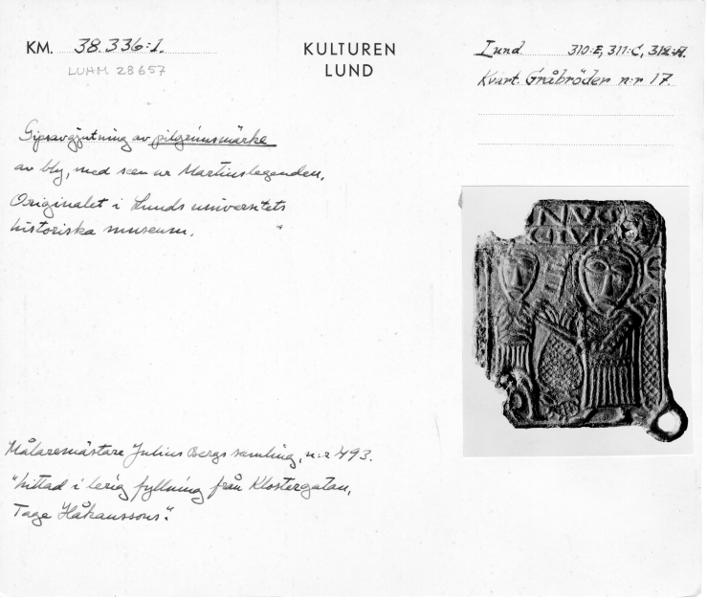 KM. 38.336:1.
LUHM 28657
KULTUREN
LUND
Lund 310:E, 311:C, 312:A.
Kvart. Gråbröder n:r 17.
Gipsavgjutning av pilgrimsmärke
av bly, med scen ur Martinslegenden.
Originalet i Lunds universitets
historiska museum.
Målaremästare Julius Bergs samling, n:r 493.
"hittad i lerig fyllning från Klostergatan,
Tage Håkanssons".